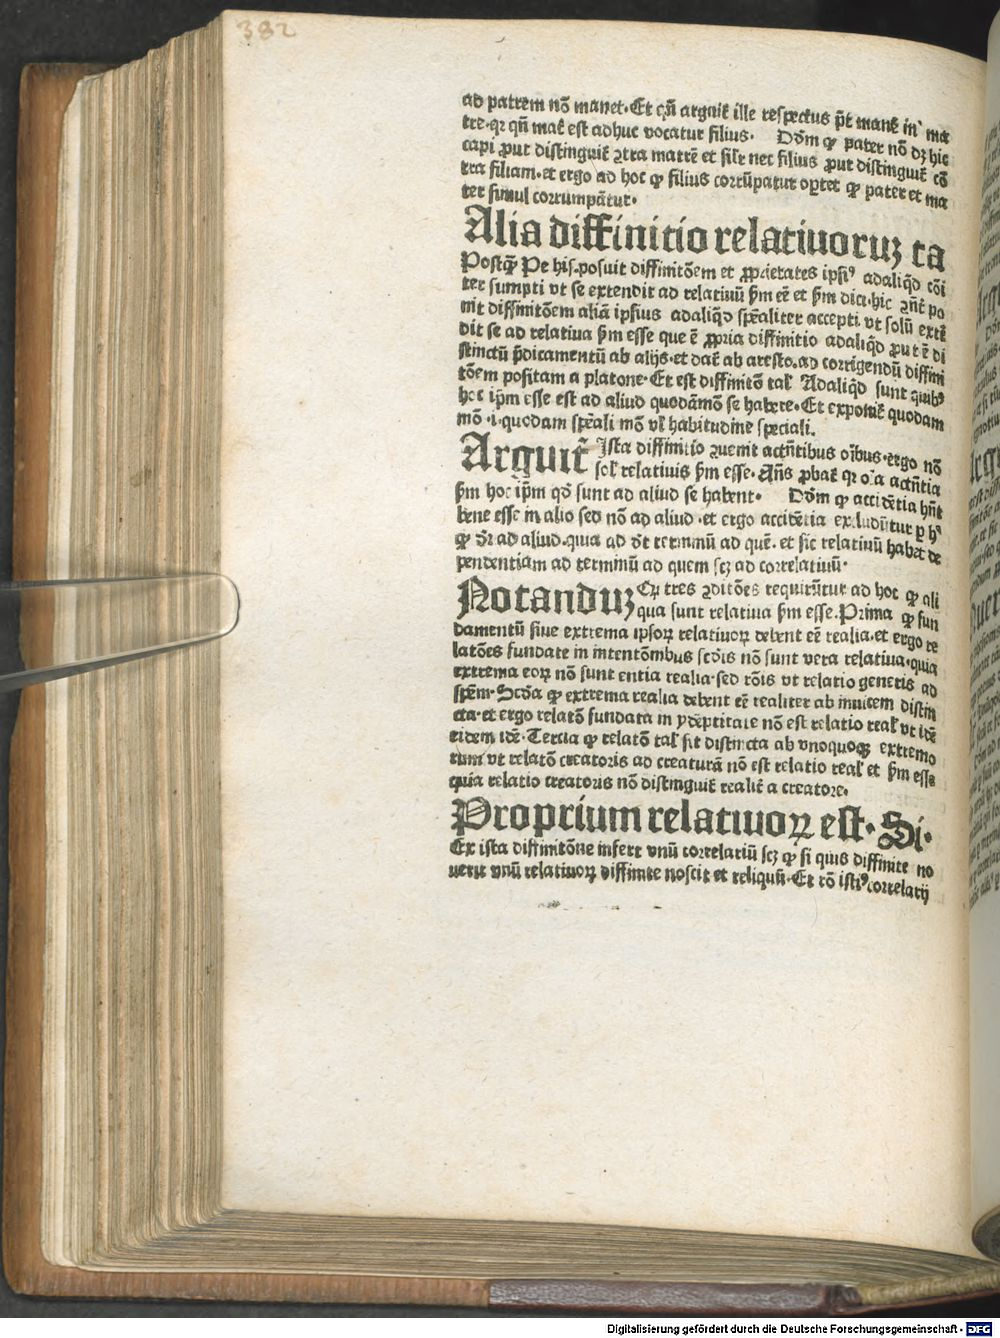 382
ad patrem nō manet. Et cū arguit̄ ille respectus p̄t manē in ma
tre. qꝛ qn̄ mat̄ est adhuc vocatur filius. Dōm ꝙ pater nō dꝫ hic
capi ꝓut distinguit̄ ꝯtra matrē et sil̄r nec filius ꝓut distinguit̄ cō
tra filiam. et ergo ad hoc ꝙ filius corrūpatur oꝑtet ꝙ pater et ma
ter simul corrumpātur.
Alia diffinitio relatiuoruꝫ ta
Postq̄ꝫ Pe his. posuit diffinitōem et ꝓprietates ipsiꝰ adaliq̄d cōi
ter sumpti vt se extendit ad relatiuū ẜm eē et ẜm dici. hic ꝯn̄t po
nit diffinitōem aliā ipsius adaliq̄d spēaliter accepti vt solū extē
dit se ad relatiua ẜm esse que ē ꝓpria diffinitio adaliq̄d ꝓut ē di
stinctū p̄dicamentū ab alijs. et dat̄ ab aresto. ad corrigendū diffini
tōem positam a platone. Et est diffinitō tal̄ Adaliq̄d sunt quibꝰ
hoc ip̄m esse est ad aliud quodāmō se habere. Et exponit̄ quodam
mō .i. quodam spēali mō vl̄ habitudine speciali.
Arguit̄ Ista diffinitio ꝯuenit accn̄tibus oībus. ergo nō
sol̄ relatiuis ẜm esse. Ans̄ ꝓbat̄ qꝛ oīa accn̄tia
ẜm hoc ip̄m qd̄ sunt ad aliud se habent. Dōm ꝙ accidētia hn̄t
bene esse in alio sed nō ad aliud .et ergo accidētia excludūtur ꝑ hꝰ
ꝙ dr̄ ad aliud. quia ad dt̄ terminū ad quē. et sic relatiuū habet de
pendentiam ad terminū ad quem scꝫ ad correlatiuū.
Notanduꝫ Qꝙ tres ꝯditōes requirūtur ad hoc ꝙ ali
qua sunt relatiua ẜm esse. Prima ꝙ fun
damentū siue extrema ipsoꝝ relatiuoꝝ debent eē realia. et ergo re
latōes fundate in intentōnibus scd̄is nō sunt vera relatiua. quia
extrema eoꝝ nō sunt entia realia. sed rōis vt relatio generis ad
spēm. Scd̄a ꝙ extrema realia debent eē realiter ab inuicem distin
cta. et ergo relatō fundata in ydēptitate nō est relatio real̄ vt idē
eidem idē. Tercia ꝙ relatō tal̄ sit distincta ab vnoquoqꝫ extremo
rum vt relatō creatoris ad creaturā nō est relatio real̄ et ẜm esse
quia relatio creatoris nō distinguit̄ realit̄ a creatore.
Proprium relatiuoꝝ est. Si.
Ex ista diffinitōne infert vnū correlariū scꝫ ꝙ si quis diffinite no
uerit vnū relatiuoꝝ diffinite noscit et reliquū. Et rō istiꝰ correlarij
Digitalisierung gefördert durch die Deutsche Forschungsgemeinschaft - DFG